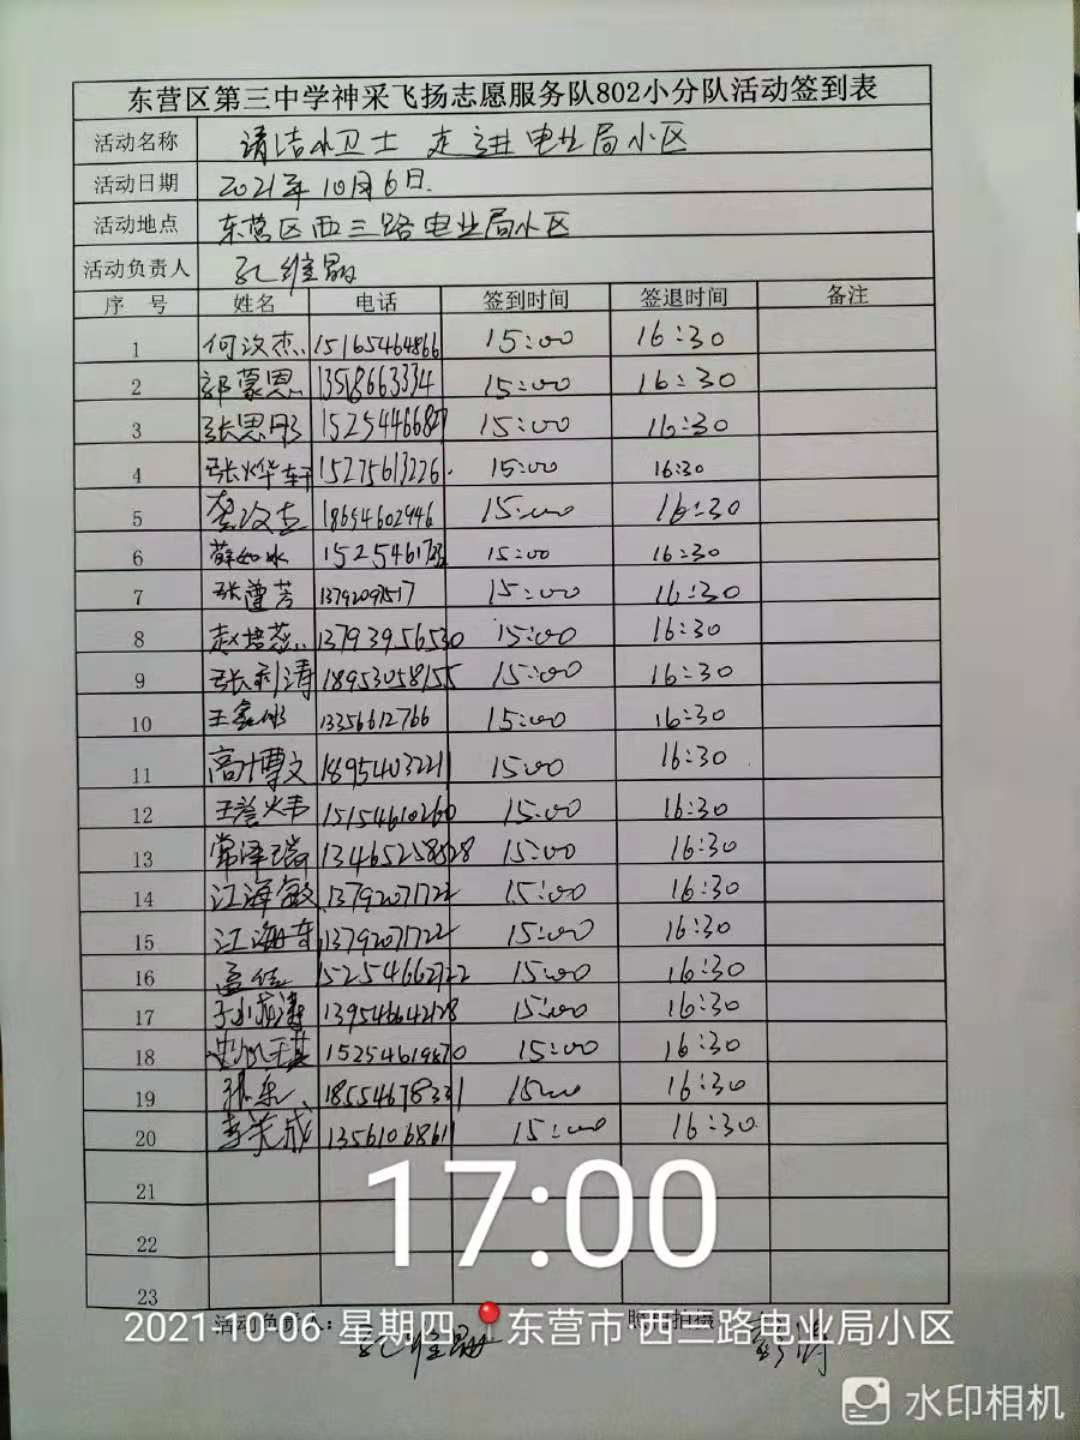 东营区第三中学神采飞扬志愿服务队802小分队活动签到表
活动名称 清洁小卫士 走进电业局小区
活动日期 2021年10月6日.
活动地点 东营区西三路电业局小区
活动负责人 孔维
序 号 姓名 电话 签到时间 签退时间 备注
1 何汶杰 15165464866 15:00 16:30
2 郭蒙恩 13518663334 15:00 16:30
3 张思彤 15:00 16:30
4 张烨轩 15275613226 15:00 16:30
5 18654602946 15:00 16:30
6 薛如冰 15:00 16:30
7 15:00 16:30
8 13793956530 15:00 16:30
9 张利涛 18953058155 15:00 16:30
10 13356612766 15:00 16:30
11 高叶博文 18954032211 15:00 16:30
12 15154610260 15:00 16:30
13 常泽瑞 13465258528 15:00 16:30
14 江海敏 13792071722 15:00 16:30
15 13792071722 15:00 16:30
16 孟佳 15254662722 15:00 16:30
17 139546642128 15:00 16:30
18 15:00 16:30
19 18554678331 15:00 16:30
20 13561068611 15:00 16:30
21
22
23
17:00
活动负责人: 孔维
2021.10.06 星期四 东营市·西三路电业局小区
水印相机